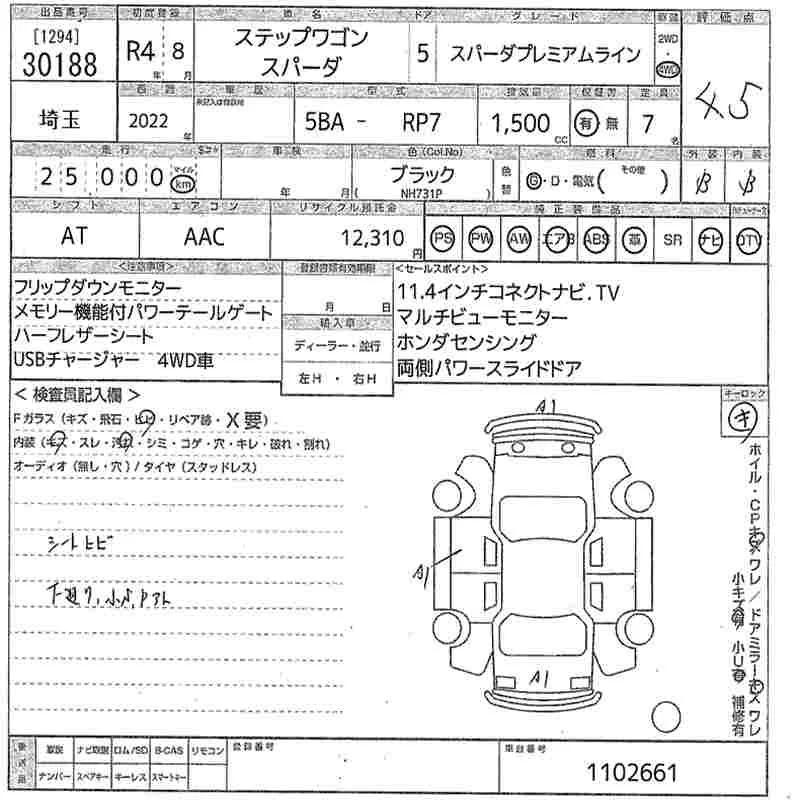 出品番号 初度登録 車名 ドア グレード 駆動 評価点
[1294]
30188
R4 8
年 月
ステップワゴン
スパーダ
5
スパーダプレミアムライン
2WD
・
4WD
4.5
埼玉
西暦 車歴 型式 排気量 保証書 定員
2022 年
未記入は自家用
5BA - RP7
1,500 CC
有・無
7 名
走行 車検 色(Col.No) 燃料 外装 内装
25,000 マイル km
年 月
ブラック
( NH731P )
色替
G・D・電気( その他 )
B B
シフト エアコン リサイクル預託金 純正装備品
AT AAC 12,310 円
PS PW AW エアB ABS 革 SR ナビ DTV
<注意事項> 登録書類有効期限 <セールスポイント>
フリップダウンモニター
メモリー機能付パワーテールゲート
ハーフレザーシート
USBチャージャー 4WD車
月 日
輸入車
ディーラー・並行
左H ・ 右H
11.4インチコネクトナビ.TV
マルチビューモニター
ホンダセンシング
両側パワースライドドア
< 検査員記入欄 >
Fガラス(キズ・飛石・ヒビ・リペア跡・X要)
内装(キズ・スレ・汚れ・シミ・コゲ・穴・キレ・破れ・割れ)
オーディオ(無し・穴)/タイヤ(スタッドレス)
シートヒビ
下廻り,小さびアト
キーロック
キ
A1
A1
A1
ホイル・CPキズワレ/ドアミラーキズワレ
小キズ有 小U有 補修有
後送品
取説 ナビ取説 ロム/SD B-CAS リモコン
ナンバー スペアキー キーレス スマートキー
登録番号
車台番号
1102661